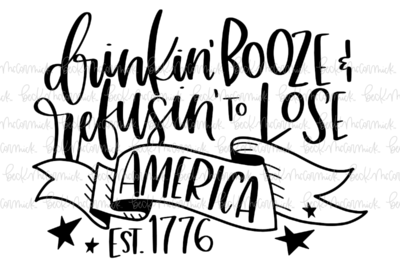 drinkin' BOOZE &
refusin' TO LOSE
AMERICA
EST. 1776